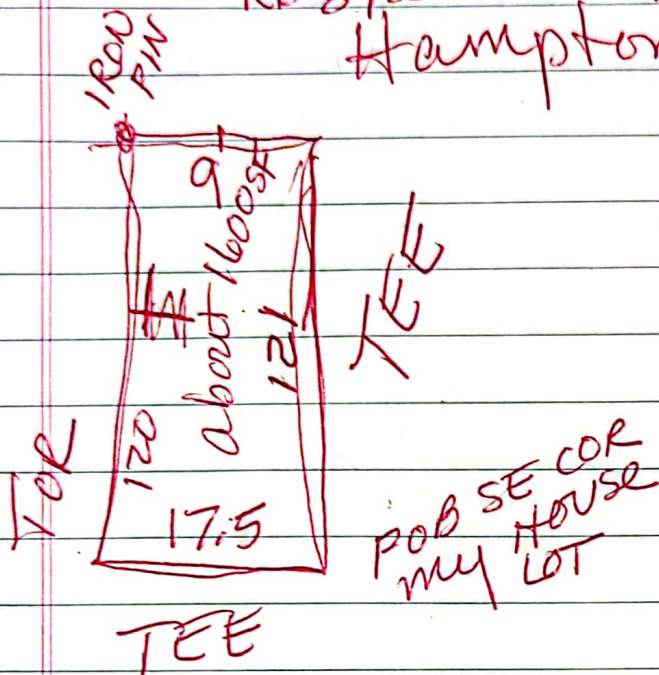 Hampton
IRON
PIN
9
about 1600 SF
121
120
TEE
TOR
17.5
POB SE COR
MY HOUSE
LOT
TEE